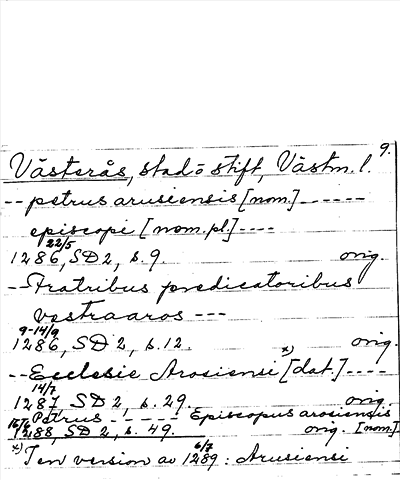 9.
Västerås, stad o stift, Västm. l.
-- petrus arusiensis [nom.] ------
episcopi [nom. pl.] ----
22/5
1286, SD 2, s. 9. orig.
-- Fratribus predicatoribus
vestraaros ---
9-14/9
1286, SD 2, s. 12. orig.
-- Ecclesie Arosiensi x) [dat.] ----
14/7
1287 SD 2, s. 29. orig.
Petrus - - - - - Episcopus arosiensis
1288, SD 2, s. 49. orig. [nom]
6/7
x) I en version av 1289: Arusiensi